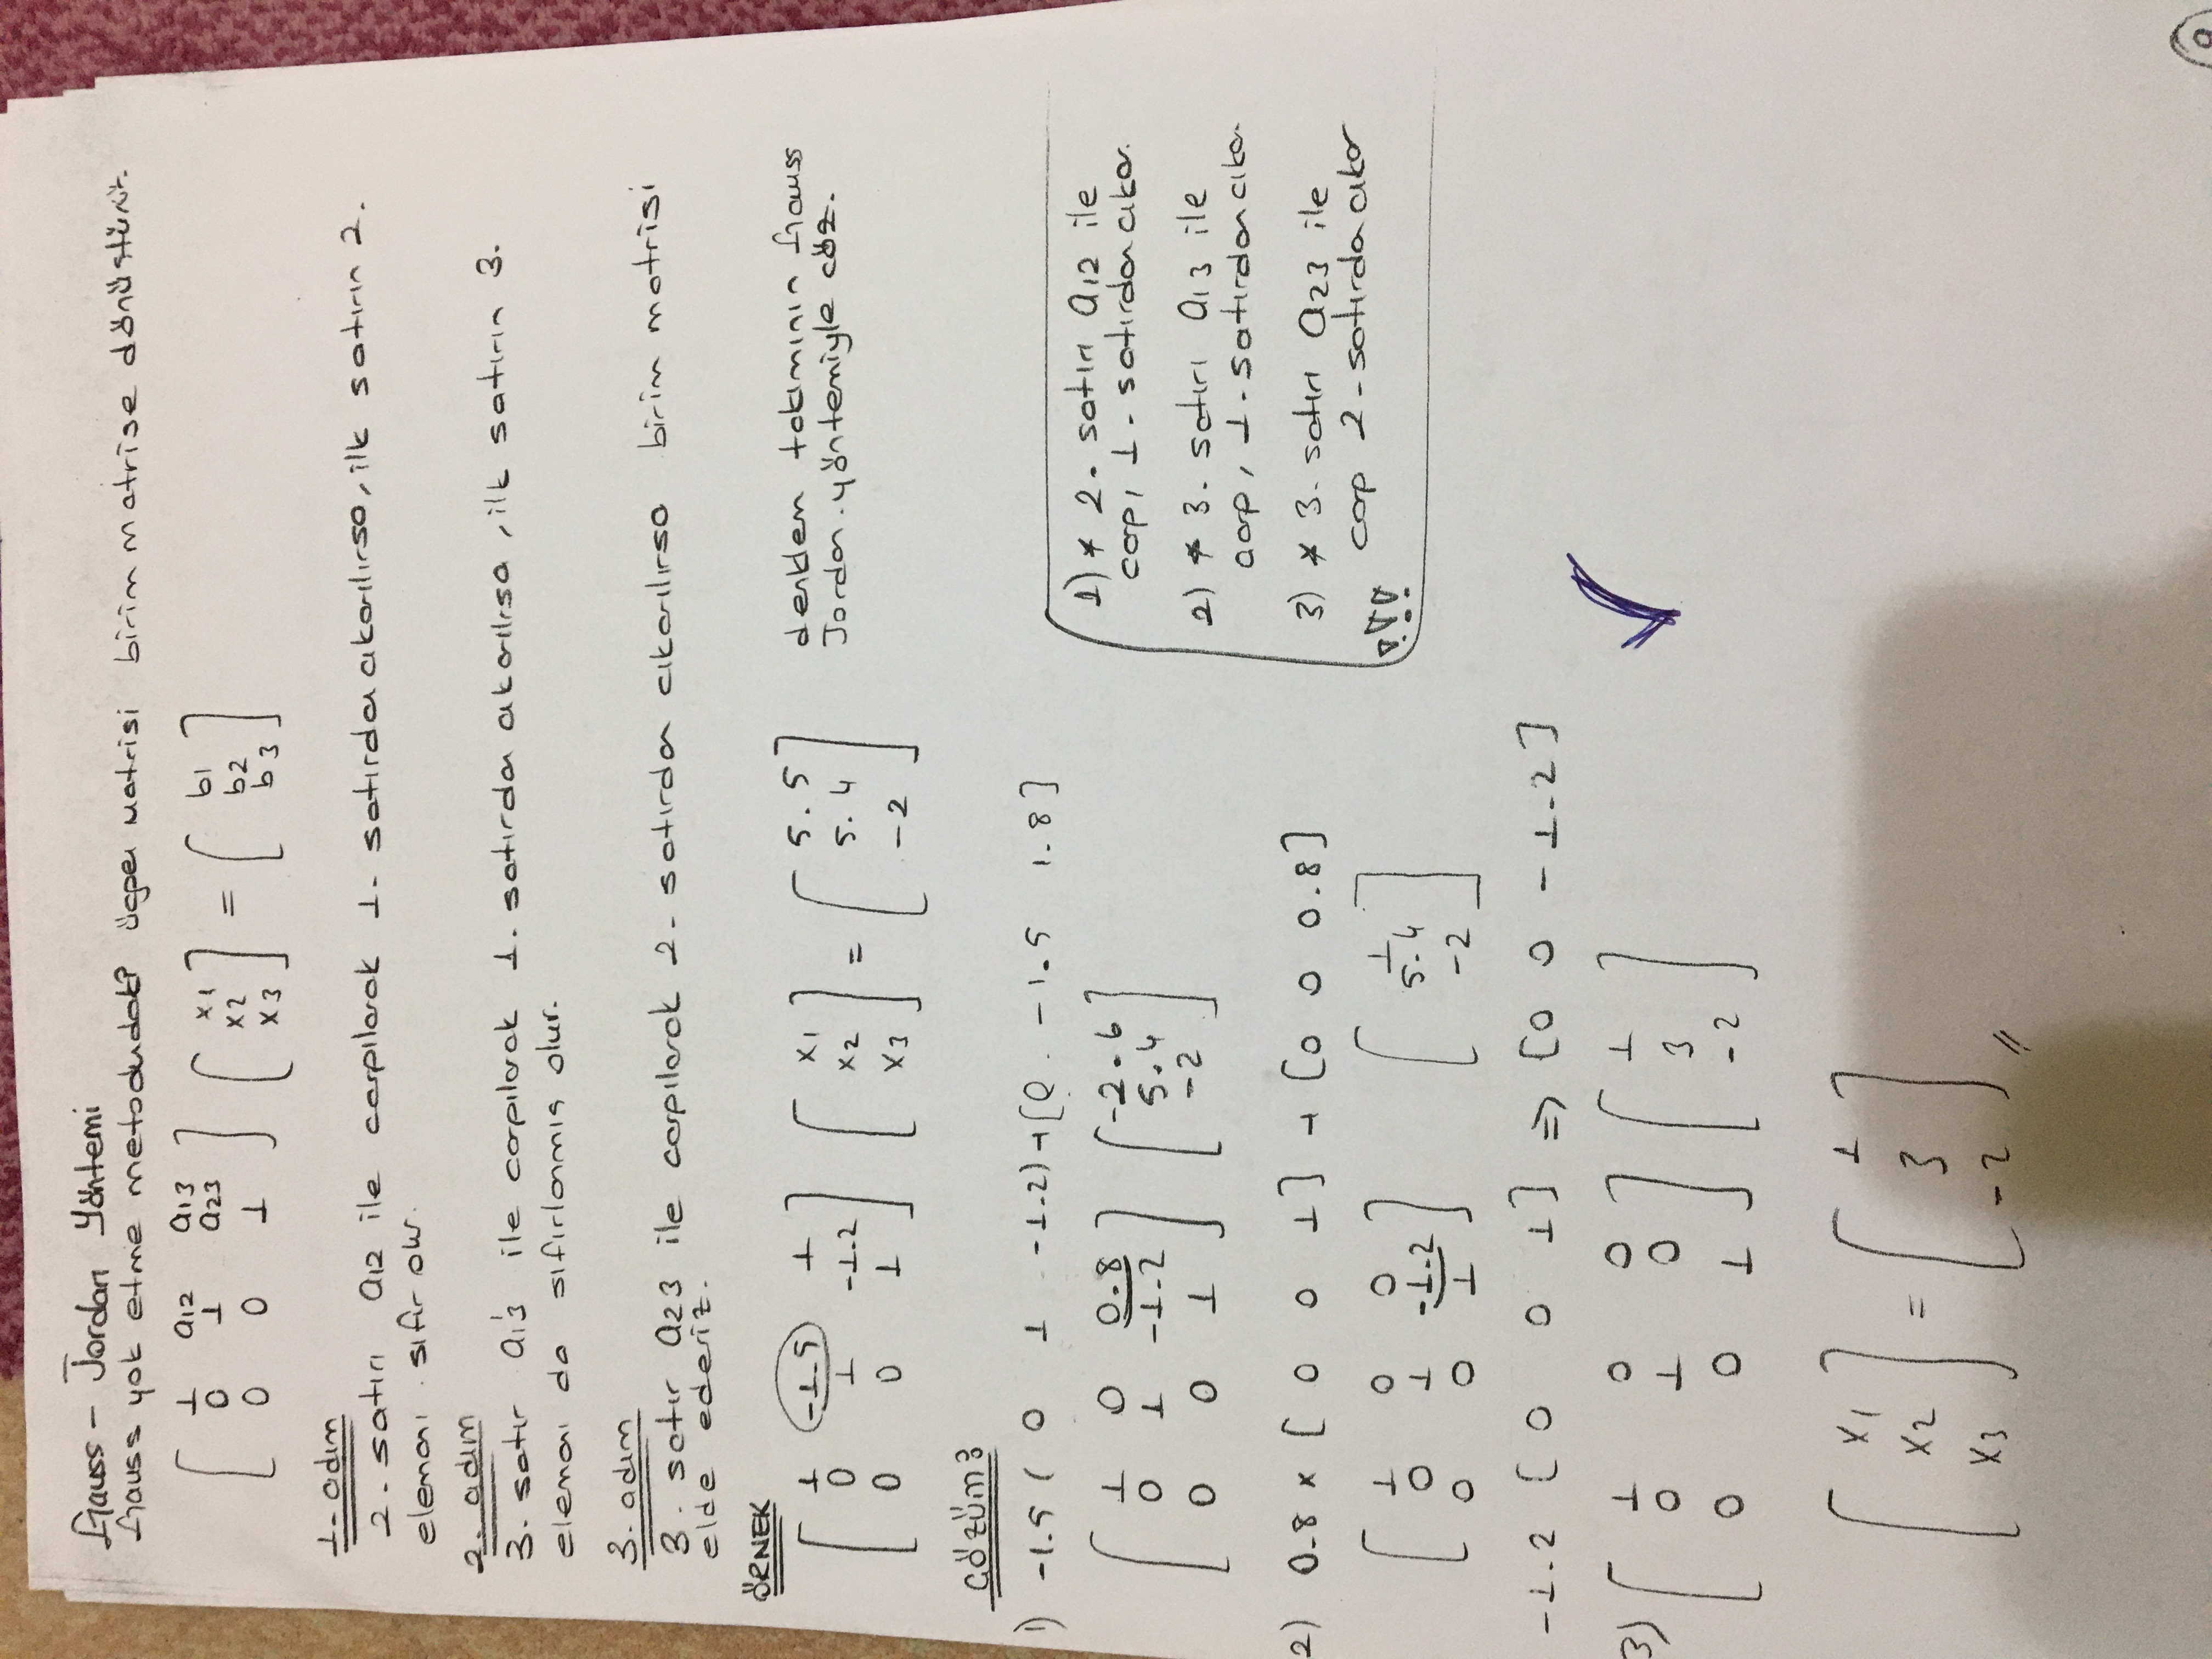 Gauss - Jordan Yöntemi
Gauss yok etme metodudaki üçgen matrisi birim matrise dönüştürür.
[ 1 a12 a13 ] [ x1 ] = [ b1 ]
[ 0 1 a23 ] [ x2 ] [ b2 ]
[ 0 0 1 ] [ x3 ] [ b3 ]
1. adım
2. satırı a12 ile carpılarak 1. satırdan cıkarılırsa, ilk satırın 2.
elemanı sıfır olur.
2. adım
3. satır a13 ile carpılarak 1. satırdan cıkarılırsa, ilk satırın 3.
elemanı da sıfırlanmış olur.
3. adım
3. satır a23 ile carpılarak 2. satırdan cıkarılırsa birim matrisi
elde ederiz.
ÖRNEK
[ 1 -1.5 1 ] [ x1 ] = [ 5.5 ]
[ 0 1 -1.2 ] [ x2 ] [ 5.4 ]
[ 0 0 1 ] [ x3 ] [ -2 ]
denklem takımının Gauss
Jordan yöntemiyle cöz.
ÇÖZÜM:
1) -1.5 ( 0 1 -1.2) → [0 -1.5 1.8]
[ 1 0 0.8 ] [ -2.6 ]
[ 0 1 -1.2 ] [ 5.4 ]
[ 0 0 1 ] [ -2 ]
2) 0.8 x [ 0 0 1 ] → [ 0 0 0.8 ]
[ 1 0 0 ] [ 1 ]
[ 0 1 -1.2 ] [ 5.4 ]
[ 0 0 1 ] [ -2 ]
-1.2 [ 0 0 1 ] ⇒ [ 0 0 -1.2 ]
3) [ 1 0 0 ] [ 1 ]
[ 0 1 0 ] [ 3 ]
[ 0 0 1 ] [ -2 ]
[ x1 ] = [ 1 ]
[ x2 ] [ 3 ]
[ x3 ] [ -2 ] //
1) * 2. satırı a12 ile
carp, 1. satırdan cıkar.
2) * 3. satırı a13 ile
carp, 1. satırdan cıkar.
3) * 3. satırı a23 ile
carp 2. satırda cıkar
!!!